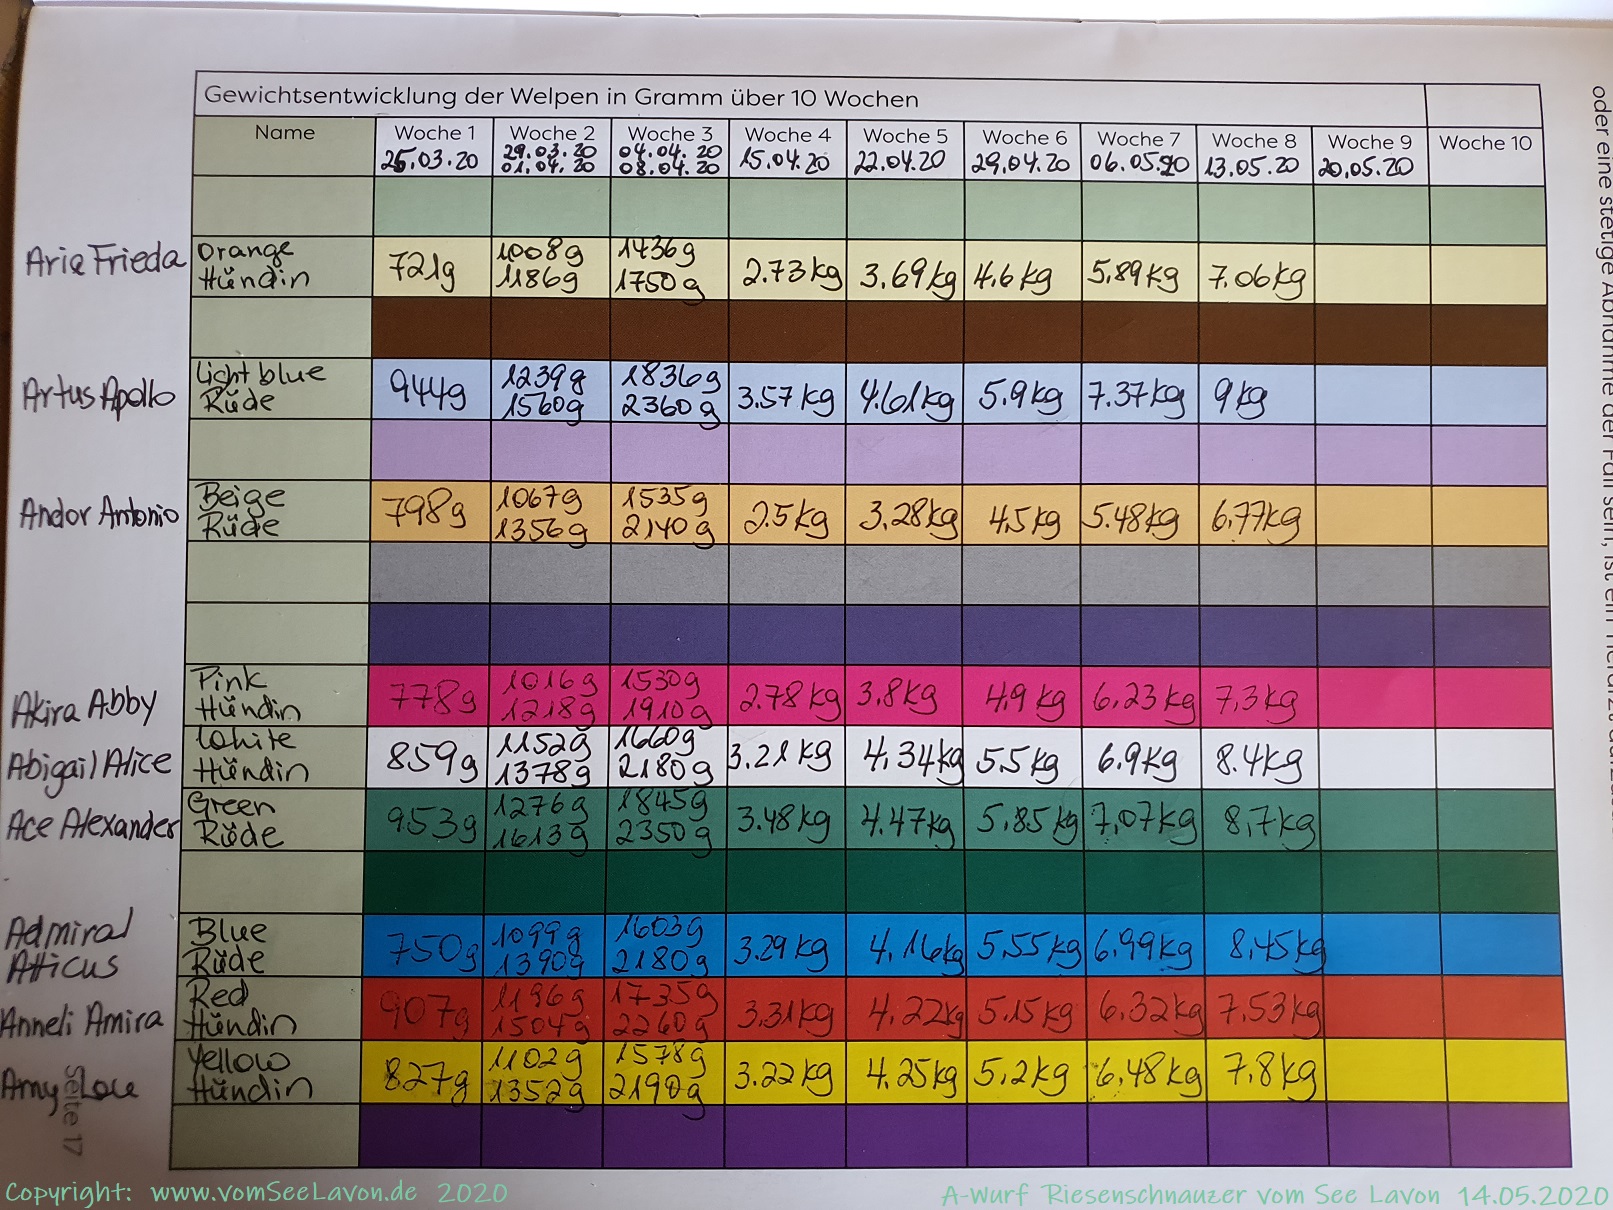 Gewichtsentwicklung der Welpen in Gramm über 10 Wochen
Name Woche 1 Woche 2 Woche 3 Woche 4 Woche 5 Woche 6 Woche 7 Woche 8 Woche 9 Woche 10
25.03.20 29.03.20 04.04.20 15.04.20 22.04.20 29.04.20 06.05.20 13.05.20 20.05.20
01.04.20 08.04.20
Aria Frieda Orange 721g 1008g 1436g 2.73kg 3.69kg 4.6kg 5.89kg 7.06kg
Hündin 1186g 1750g
Artus Apollo Light blue 944g 1239g 1836g 3.57kg 4.61kg 5.9kg 7.37kg 9kg
Rüde 1560g 2360g
Andor Antonio Beige 798g 1067g 1535g 2.5kg 3.28kg 4.5kg 5.48kg 6.77kg
Rüde 1356g 2140g
Akira Abby Pink 778g 1016g 1530g 2.78kg 3.8kg 4.9kg 6.23kg 7.3kg
Hündin 1218g 1910g
Abigail Alice White 859g 1152g 1660g 3.21kg 4.34kg 5.5kg 6.9kg 8.4kg
Hündin 1378g 2180g
Ace Alexander Green 953g 1276g 1845g 3.48kg 4.47kg 5.85kg 7.07kg 8.7kg
Rüde 1613g 2350g
Admiral Blue 750g 1099g 1603g 3.29kg 4.16kg 5.55kg 6.99kg 8.45kg
Atticus Rüde 1390g 2180g
Anneli Amira Red 907g 1196g 1735g 3.31kg 4.22kg 5.15kg 6.32kg 7.53kg
Hündin 1504g 2260g
Amy Lou Yellow 827g 1102g 1578g 3.22kg 4.25kg 5.2kg 6.48kg 7.8kg
Hündin 1352g 2190g
Seite 17
oder eine stetige Abnahme der Fall sein, ist ein
Copyright: www.vomSeeLavon.de 2020
A-Wurf Riesenschnauzer vom See Lavon 14.05.2020